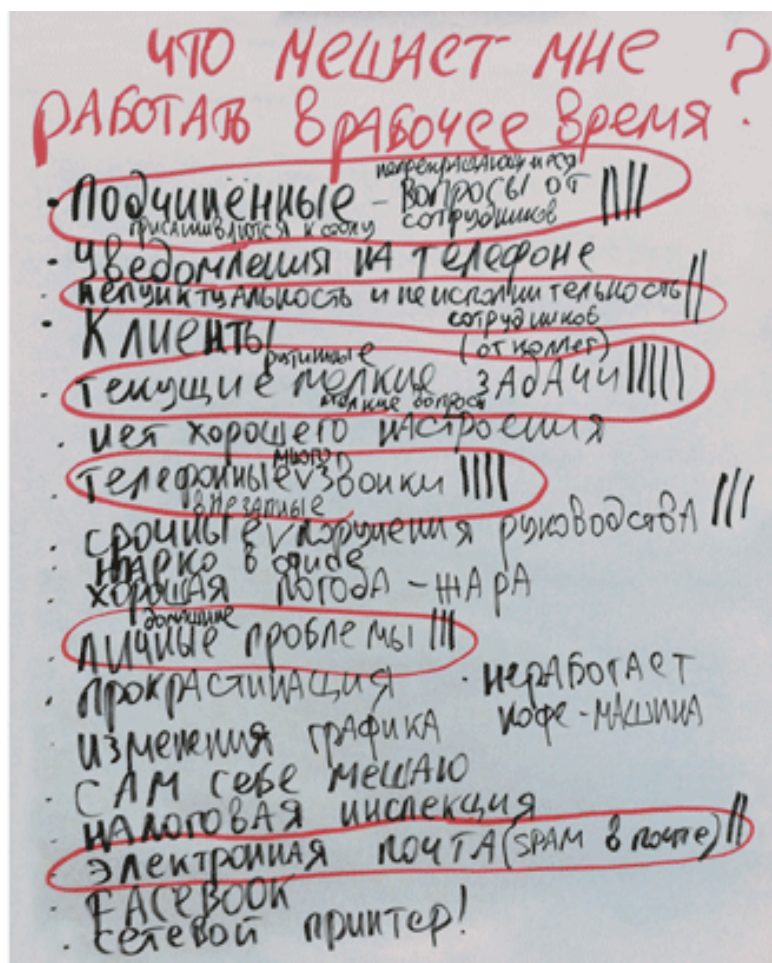 ЧТО МЕШАЕТ МНЕ
РАБОТАТЬ В РАБОЧЕЕ ВРЕМЯ?
непрекращающиеся
· Подчинённые – вопросы от
сотрудников ||||
· Уведомления на телефоне
· непунктуальность и неисполнительность ||
сотрудников
· Клиенты
рутинные (от коллег)
· текущие мелкие задачи |||||
мелкие вопросы
· нет хорошего настроения
много
· телефонные звонки ||||
внезапные
· срочные поручения руководства |||
· жарко в офисе
· хорошая погода – жара
домашние
· личные проблемы |||
· прокрастинация
· неработает
кофе-машина
· изменения графика
· сам себе мешаю
· налоговая инспекция
· электронная почта (SPAM в почте) ||
· FACEBOOK
· сетевой принтер!